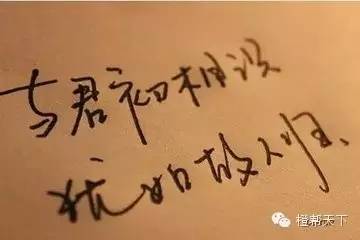 与君初相识
犹如故人归
橙帮天下